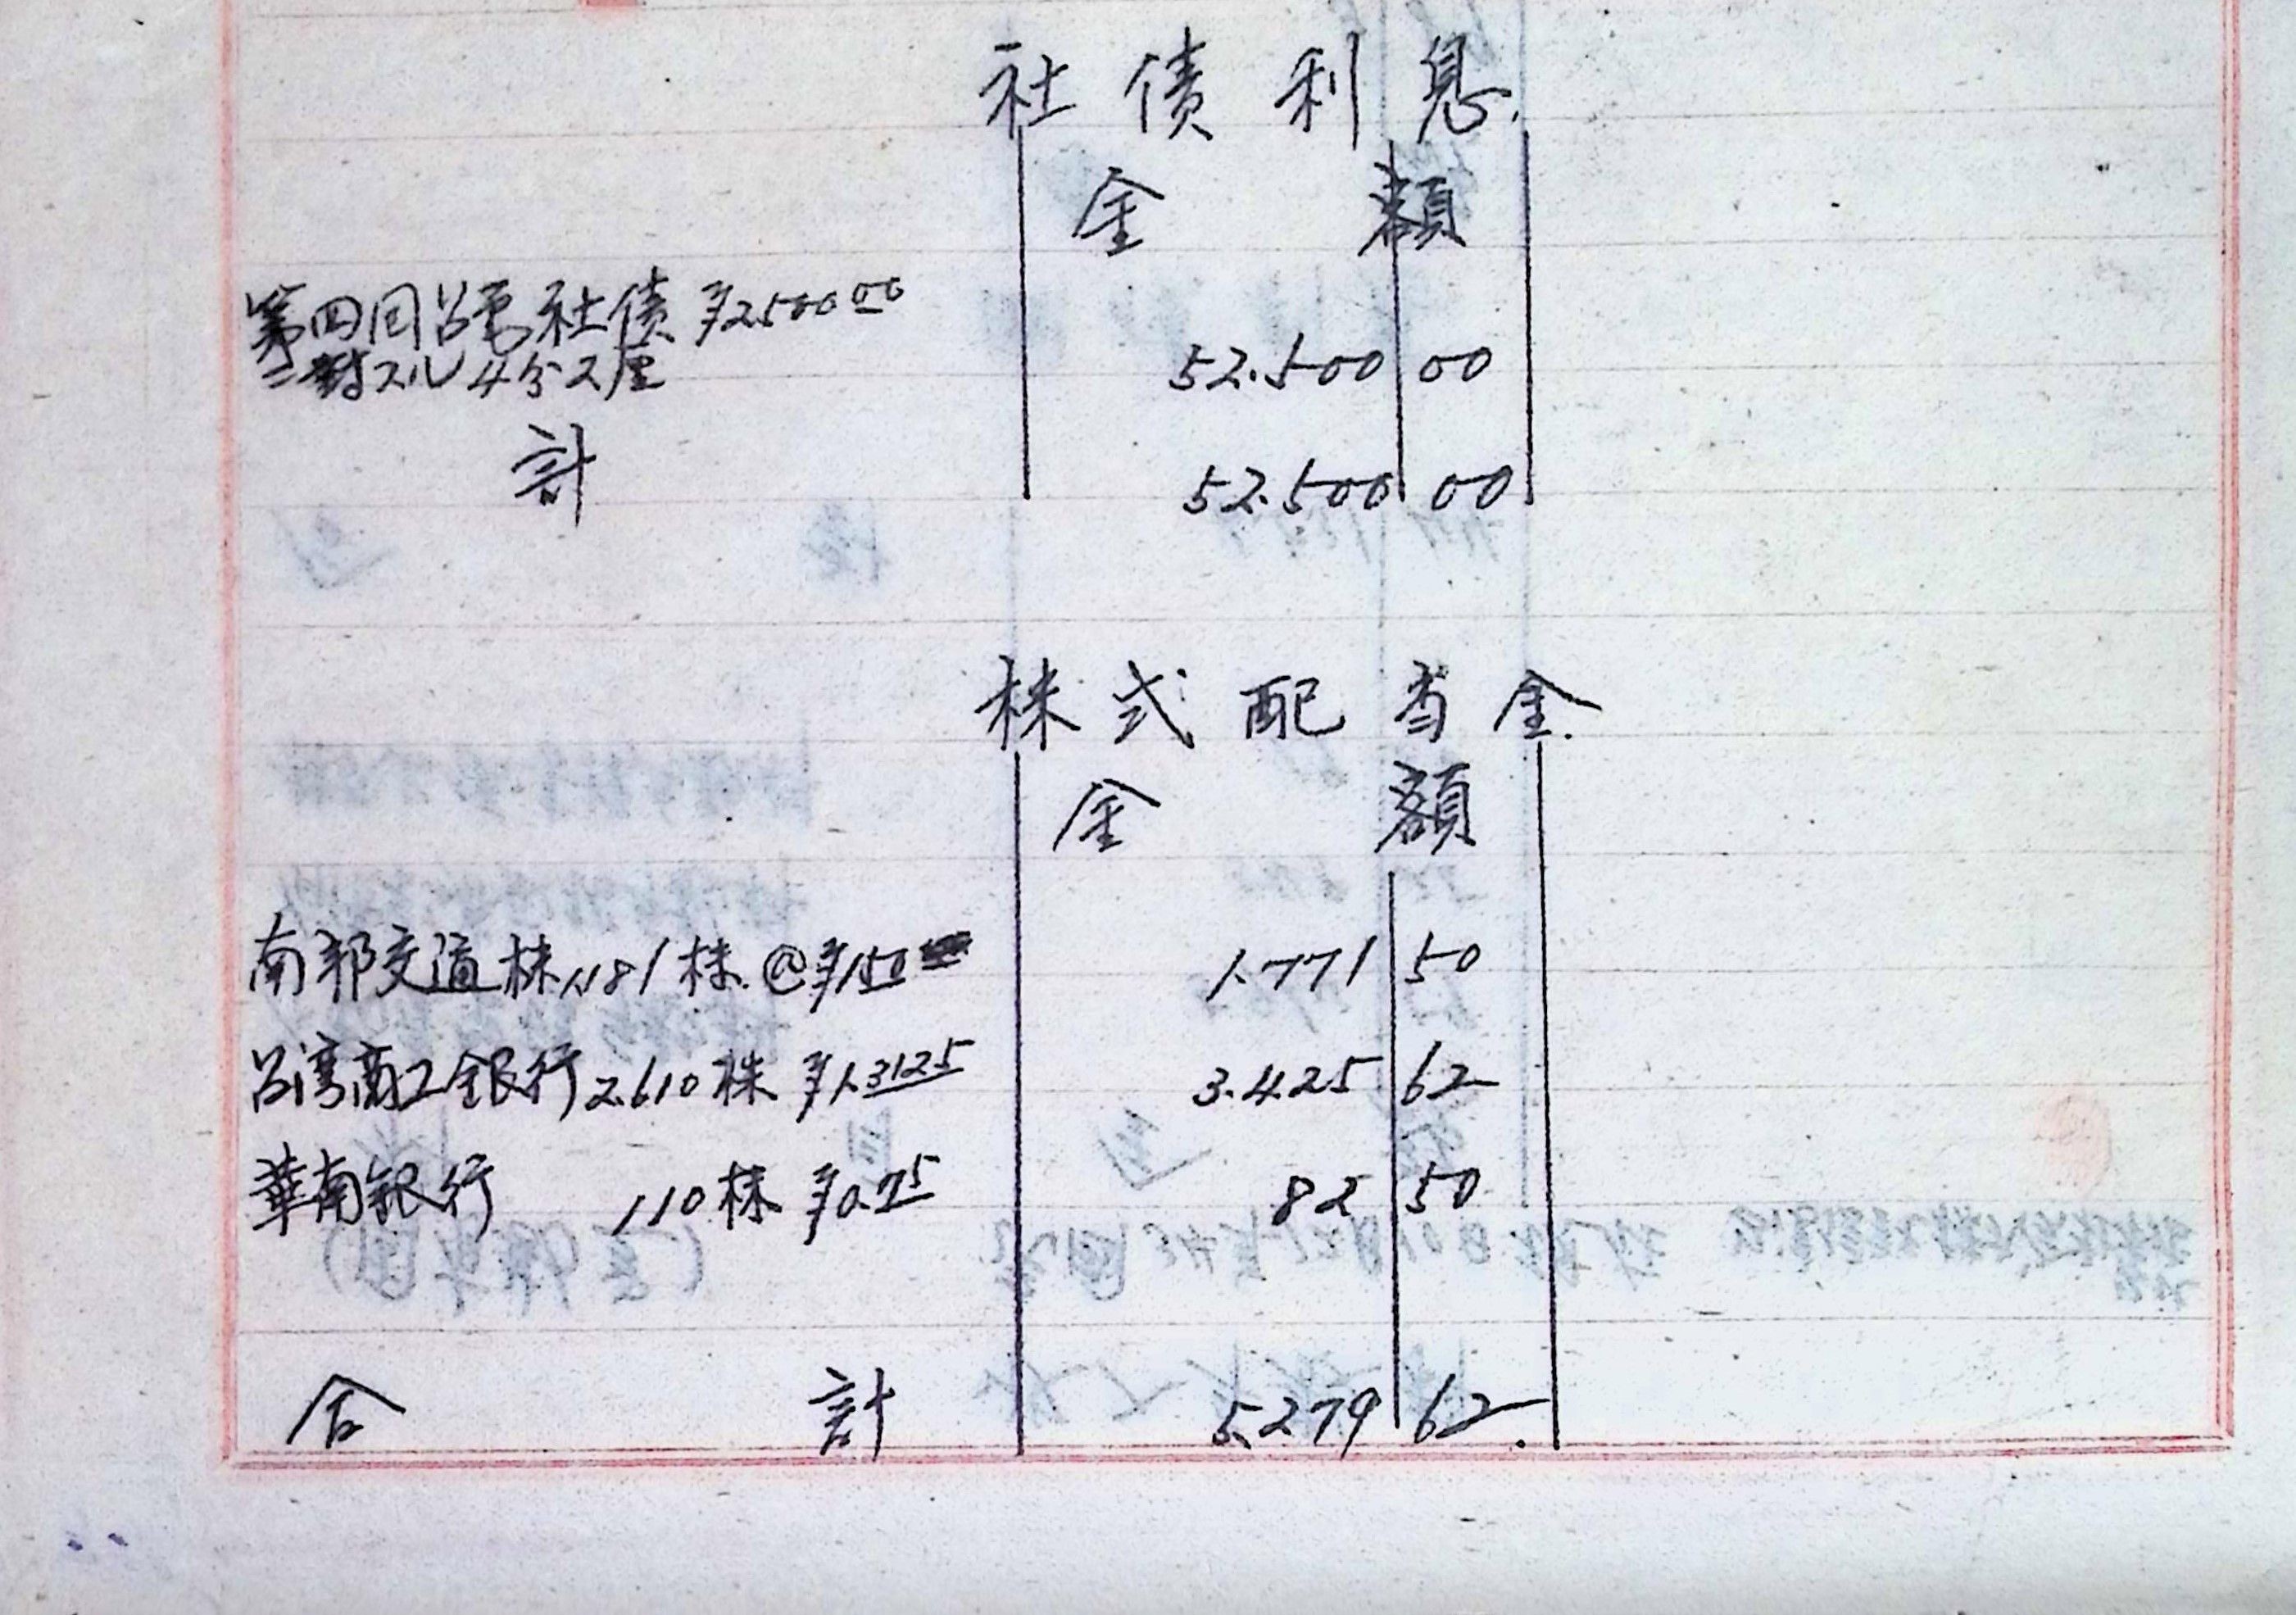 社債利息.
金額
第四回台電社債 ¥2500 00
ニ対スル4分2厘 52.500 00
計 52.500 00
株式配当金.
金額
南部交通株 1.181株. @¥1.50 1.771 50
台湾商工銀行 2.610株 ¥1.3125 3.425 62
華南銀行 110株 ¥0.75 82 50
合計 5.279 62.